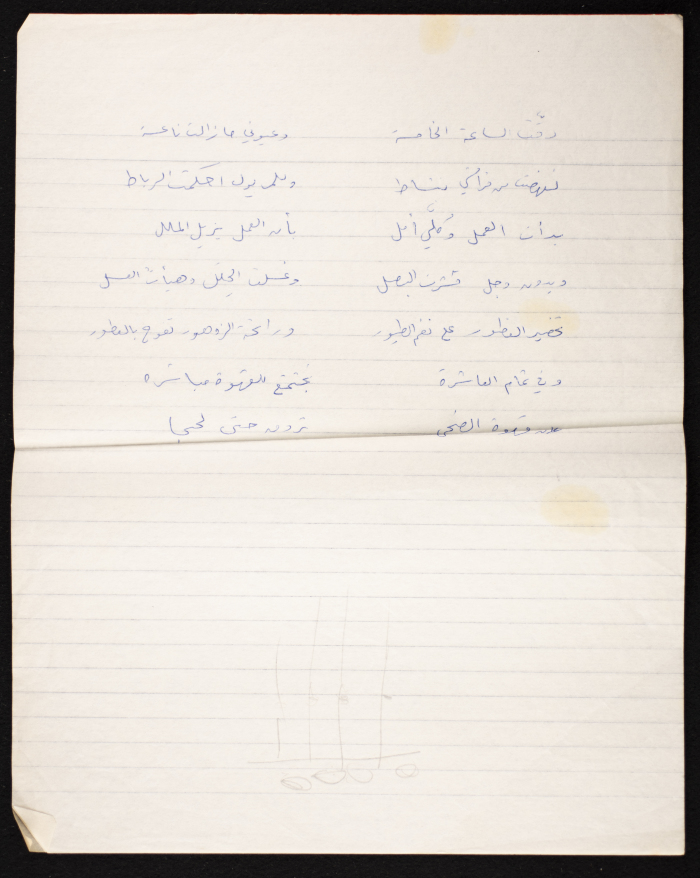 دقّت الساعة الخامسة وعيوني ما زالت ناعسة
نهضت من فراشي بنشاط وللمريول احكمت الرباط
بدأت العمل وكلّي أمل بأن العمل يزيل الملل
وبدون وجل قشرت البصل وغسلت الحلل وهيأت العسل
تحضير الفطور على نغم الطيور ورائحة الزهور تفوح بالعطور
وفي تمام العاشرة نجتمع للقهوة مباشره
قهوة الضحى ترون حتى